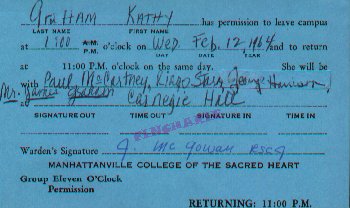 Graham Kathy has permission to leave campus
LAST NAME FIRST NAME
at 1:00 A.M. P.M. o'clock on Wed Feb. 12, 1964 and to return
DAY DATE YEAR
at 11:00 P.M. o'clock on the same day. She will be
with Paul McCartney, Ringo Starr, George Harrison,
Mr. James
at Carnegie Hall
SIGNATURE OUT TIME OUT SIGNATURE IN TIME IN
Warden's Signature J. McGowan RSCJ
MANHATTANVILLE COLLEGE OF THE SACRED HEART
Group Eleven O'Clock
Permission
RETURNING: 11:00 P.M.